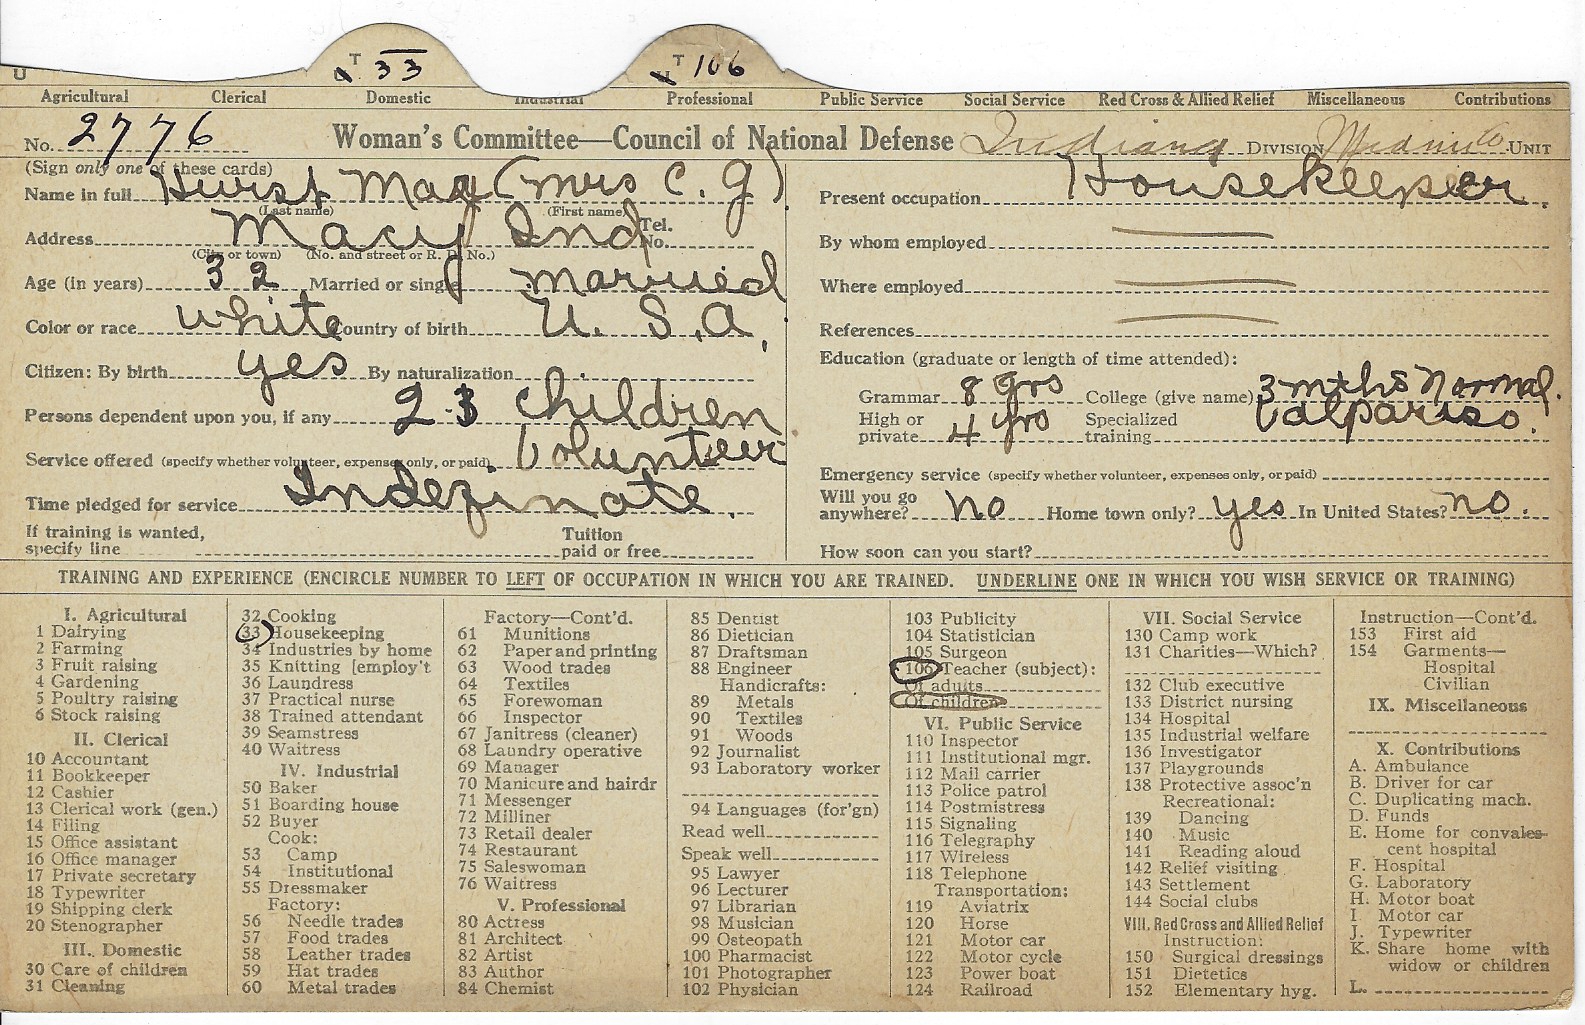 U T 33 T 106
Agricultural Clerical Domestic Industrial Professional Public Service Social Service Red Cross & Allied Relief Miscellaneous Contributions
No. 2776 Woman's Committee—Council of National Defense Indiana DIVISION Miami Co. UNIT
(Sign only one of these cards)
Name in full Hurst May (Mrs C. G)
(Last name) (First name)
Address Macy Ind Tel. No.
(City or town) (No. and street or R. D. No.)
Age (in years) 32 Married or single married
Color or race white Country of birth U. S. A.
Citizen: By birth yes By naturalization
Persons dependent upon you, if any 2 3 children
Service offered (specify whether volunteer, expenses only, or paid) Volunteer
Time pledged for service Indefinate.
If training is wanted, specify line Tuition paid or free
Present occupation Housekeeper.
By whom employed
Where employed
References
Education (graduate or length of time attended):
Grammar 8 grs College (give name) 3 mths Normal.
High or private 4 yrs Specialized training Valpariso.
Emergency service (specify whether volunteer, expenses only, or paid)
Will you go anywhere? no Home town only? yes In United States? no.
How soon can you start?
TRAINING AND EXPERIENCE (ENCIRCLE NUMBER TO LEFT OF OCCUPATION IN WHICH YOU ARE TRAINED. UNDERLINE ONE IN WHICH YOU WISH SERVICE OR TRAINING)
I. Agricultural
1 Dairying
2 Farming
3 Fruit raising
4 Gardening
5 Poultry raising
6 Stock raising
II. Clerical
10 Accountant
11 Bookkeeper
12 Cashier
13 Clerical work (gen.)
14 Filing
15 Office assistant
16 Office manager
17 Private secretary
18 Typewriter
19 Shipping clerk
20 Stenographer
III. Domestic
30 Care of children
31 Cleaning
32 Cooking
33 Housekeeping
34 Industries by home
35 Knitting [employ't
36 Laundress
37 Practical nurse
38 Trained attendant
39 Seamstress
40 Waitress
IV. Industrial
50 Baker
51 Boarding house
52 Buyer
Cook:
53 Camp
54 Institutional
55 Dressmaker
Factory:
56 Needle trades
57 Food trades
58 Leather trades
59 Hat trades
60 Metal trades
Factory—Cont'd.
61 Munitions
62 Paper and printing
63 Wood trades
64 Textiles
65 Forewoman
66 Inspector
67 Janitress (cleaner)
68 Laundry operative
69 Manager
70 Manicure and hairdr
71 Messenger
72 Milliner
73 Retail dealer
74 Restaurant
75 Saleswoman
76 Waitress
V. Professional
80 Actress
81 Architect
82 Artist
83 Author
84 Chemist
85 Dentist
86 Dietician
87 Draftsman
88 Engineer
Handicrafts:
89 Metals
90 Textiles
91 Woods
92 Journalist
93 Laboratory worker
94 Languages (for'gn)
Read well
Speak well
95 Lawyer
96 Lecturer
97 Librarian
98 Musician
99 Osteopath
100 Pharmacist
101 Photographer
102 Physician
103 Publicity
104 Statistician
105 Surgeon
106 Teacher (subject):
Of adults
Of children
VI. Public Service
110 Inspector
111 Institutional mgr.
112 Mail carrier
113 Police patrol
114 Postmistress
115 Signaling
116 Telegraphy
117 Wireless
118 Telephone
Transportation:
119 Aviatrix
120 Horse
121 Motor car
122 Motor cycle
123 Power boat
124 Railroad
VII. Social Service
130 Camp work
131 Charities—Which?
132 Club executive
133 District nursing
134 Hospital
135 Industrial welfare
136 Investigator
137 Playgrounds
138 Protective assoc'n
Recreational:
139 Dancing
140 Music
141 Reading aloud
142 Relief visiting
143 Settlement
144 Social clubs
VIII. Red Cross and Allied Relief
Instruction:
150 Surgical dressings
151 Dietetics
152 Elementary hyg.
Instruction—Cont'd.
153 First aid
154 Garments—
Hospital
Civilian
IX. Miscellaneous
X. Contributions
A. Ambulance
B. Driver for car
C. Duplicating mach.
D. Funds
E. Home for convales-
cent hospital
F. Hospital
G. Laboratory
H. Motor boat
I. Motor car
J. Typewriter
K. Share home with
widow or children
L.